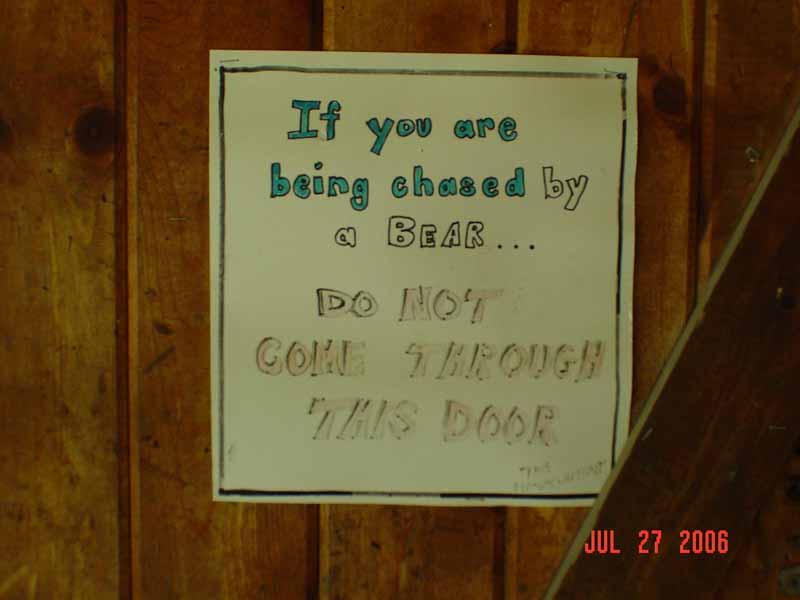 If you are
being chased by
a BEAR...
DO NOT
COME THROUGH
THIS DOOR
JUL 27 2006